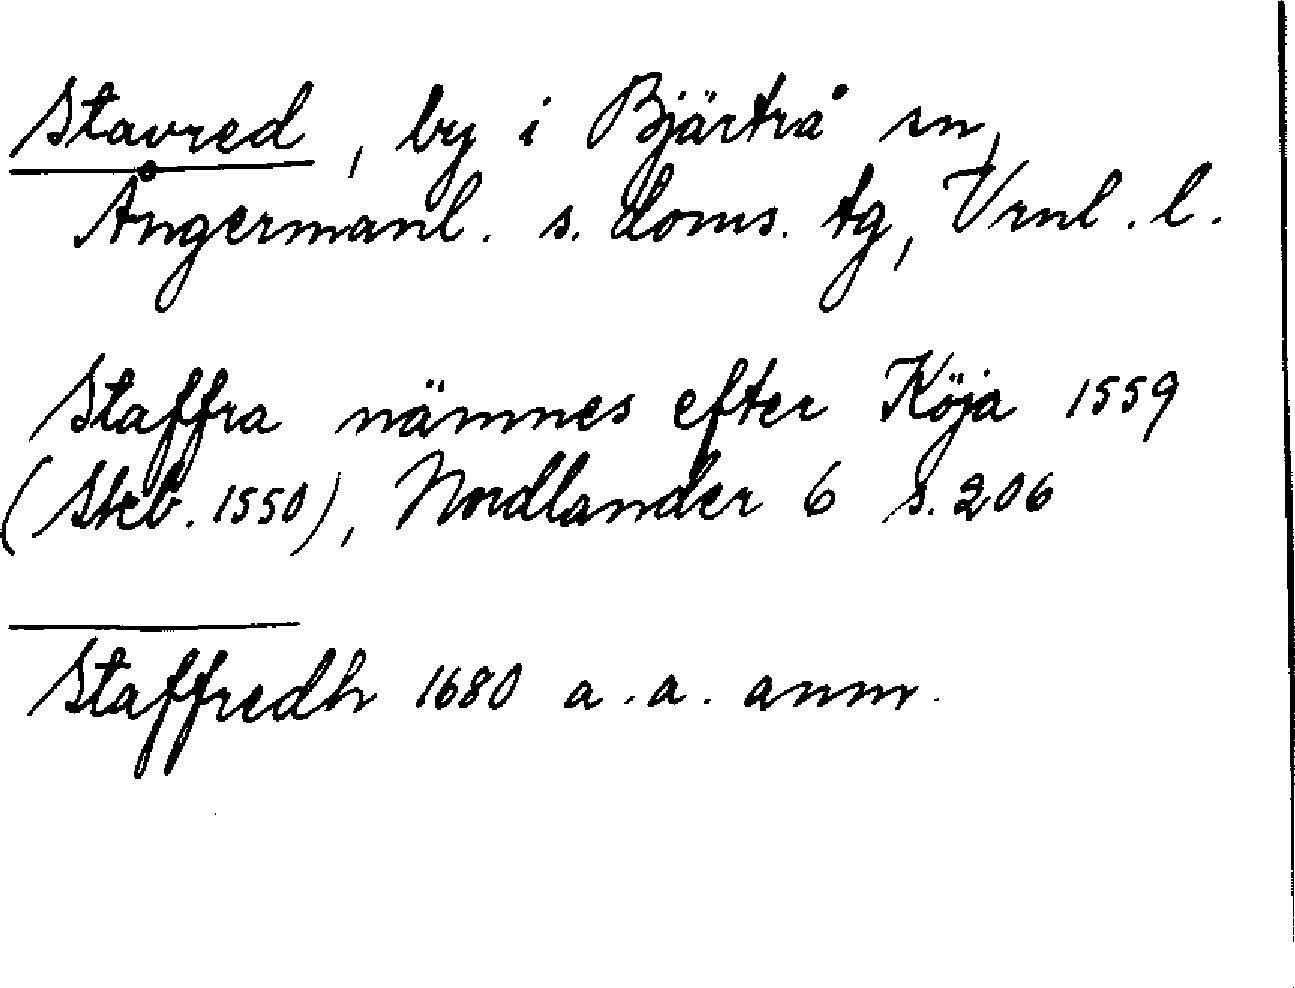 Stavred, by i Bjärtrå sn,
Ångermanl. s. doms. tg, Vrnl. l.
Staffra nämnes efter Köja 1559
(Skeb. 1550), Nordlander 6 s. 206
Staffredh 1680 a. a. anm.